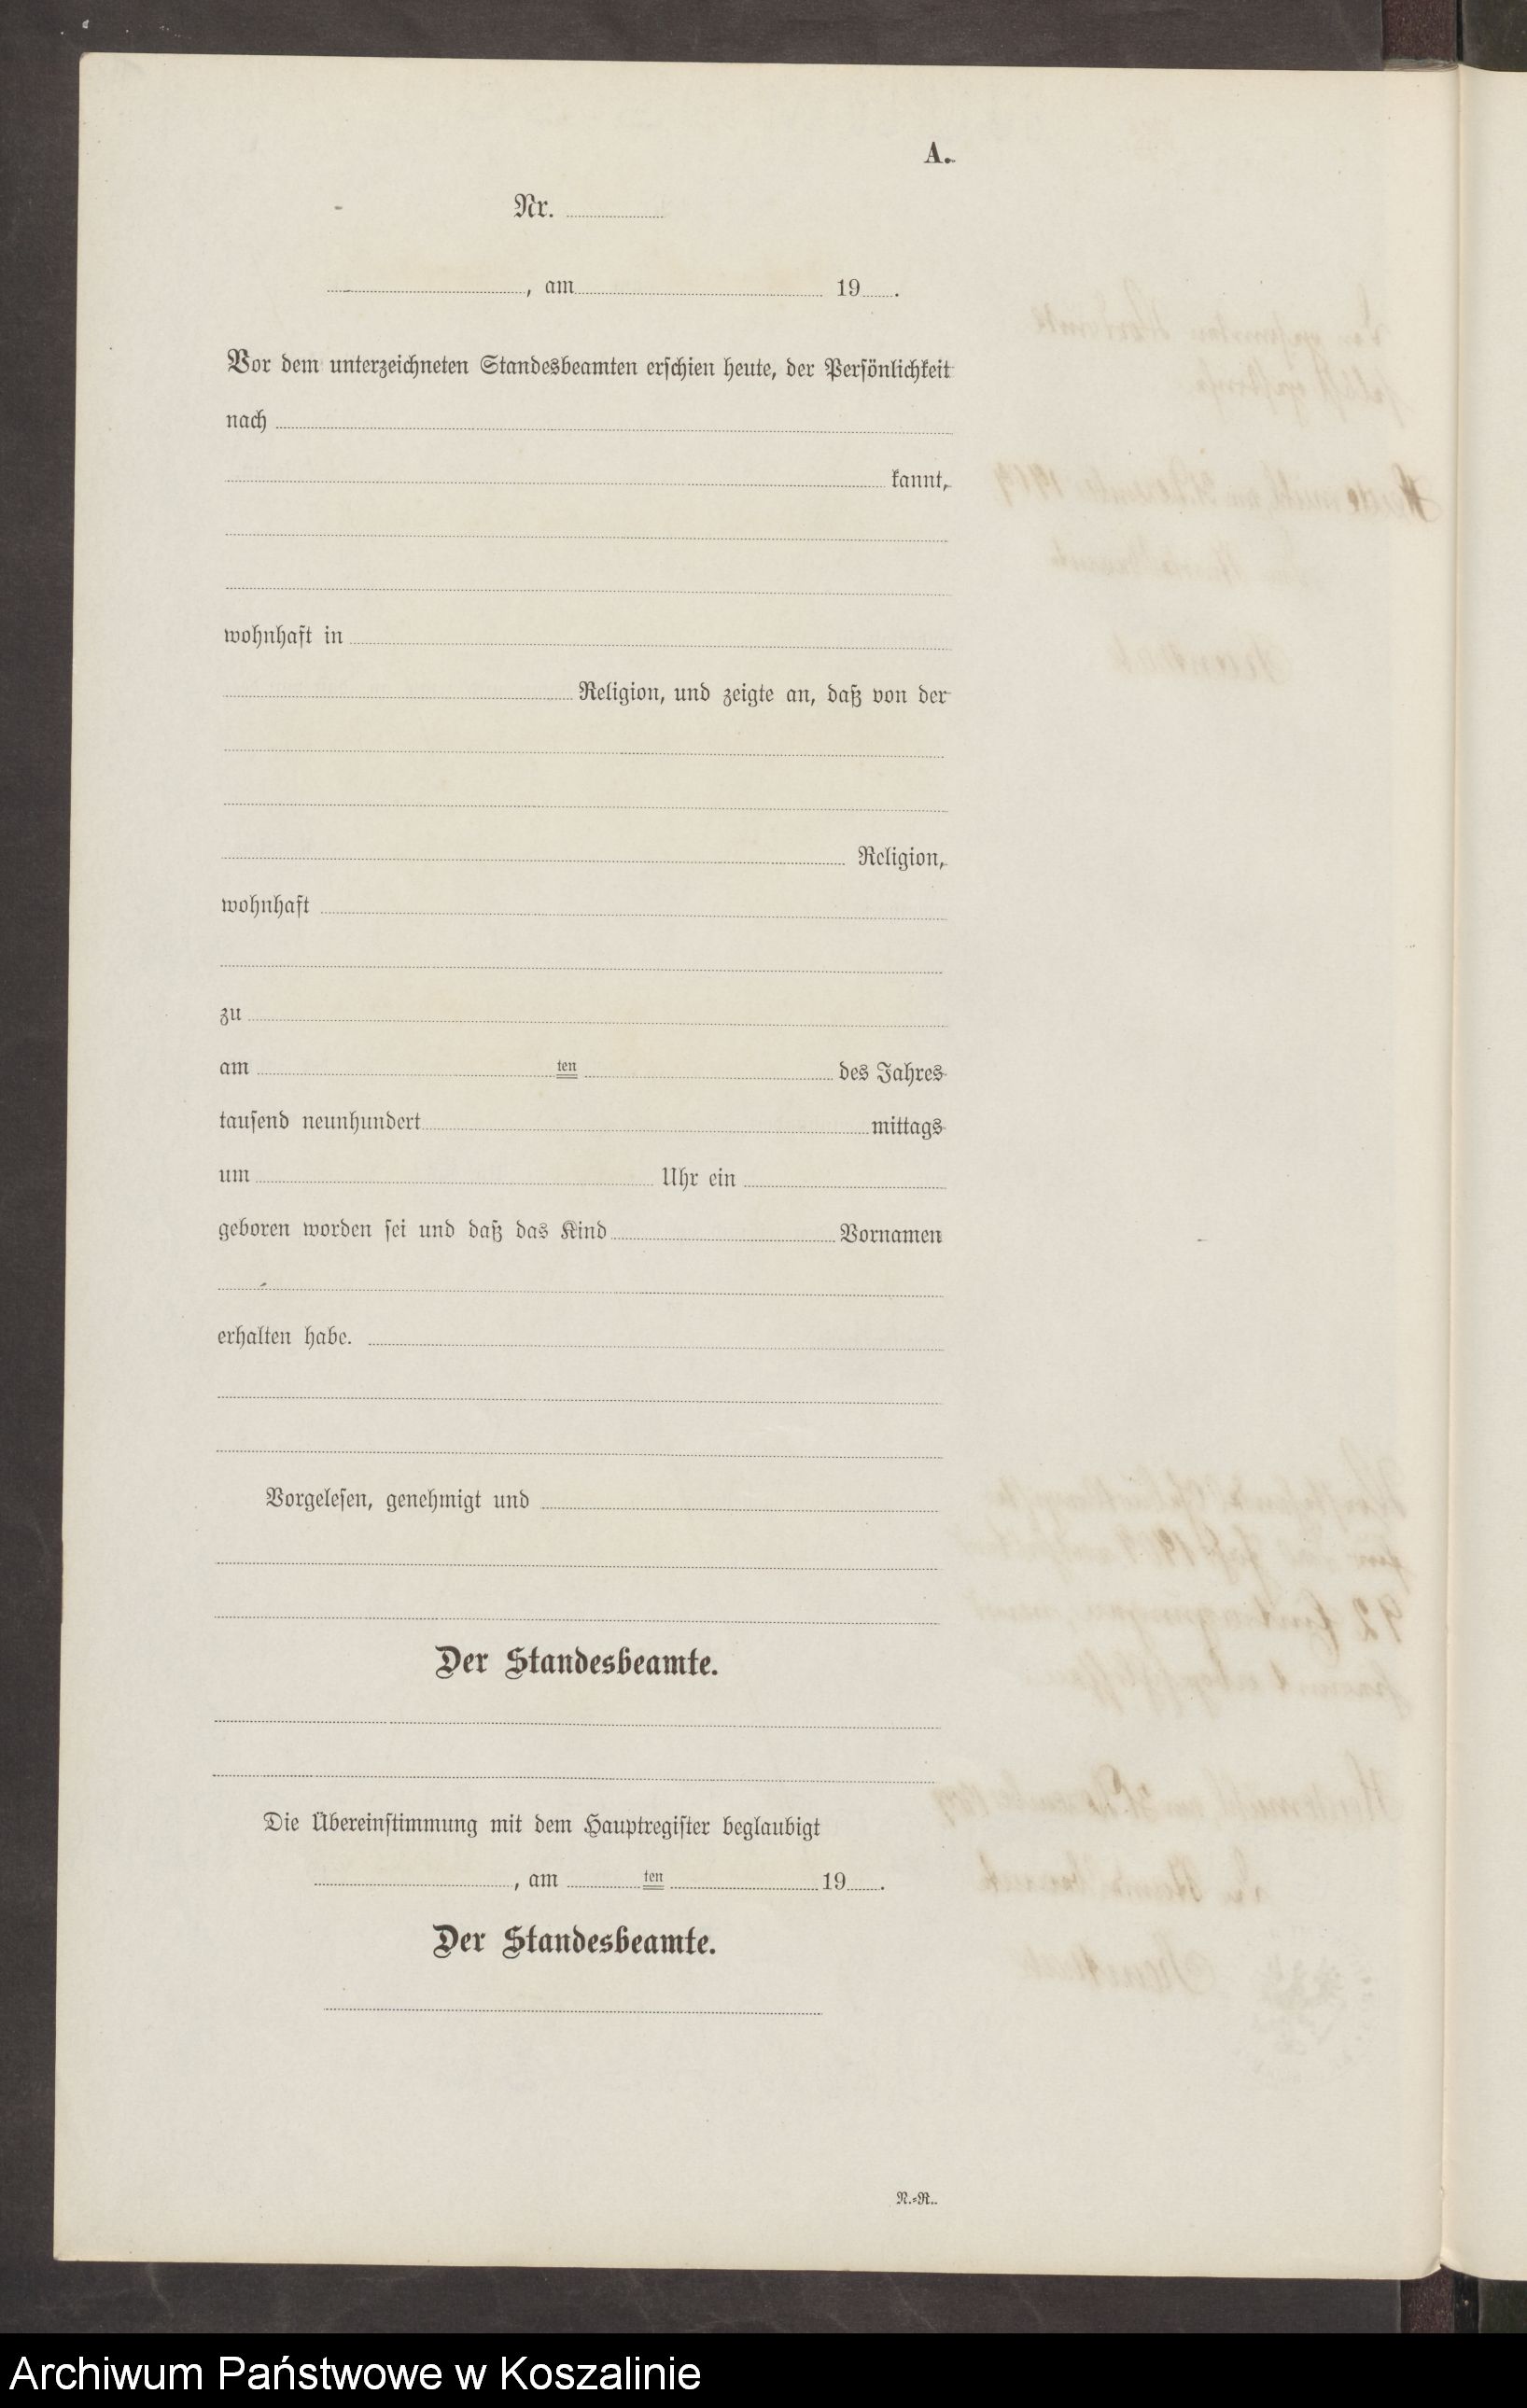 A.
Nr.
, am 19 .
Vor dem unterzeichneten Standesbeamten erschien heute, der Persönlichkeit
nach
kannt,
wohnhaft in
Religion, und zeigte an, daß von der
Religion,
wohnhaft
zu
am ten des Jahres
tausend neunhundert mittags
um Uhr ein
geboren worden sei und daß das Kind Vornamen
erhalten habe.
Vorgelesen, genehmigt und
Der Standesbeamte.
Die Übereinstimmung mit dem Hauptregister beglaubigt
, am ten 19 .
Der Standesbeamte.
N.-R.
Archiwum Państwowe w Koszalinie